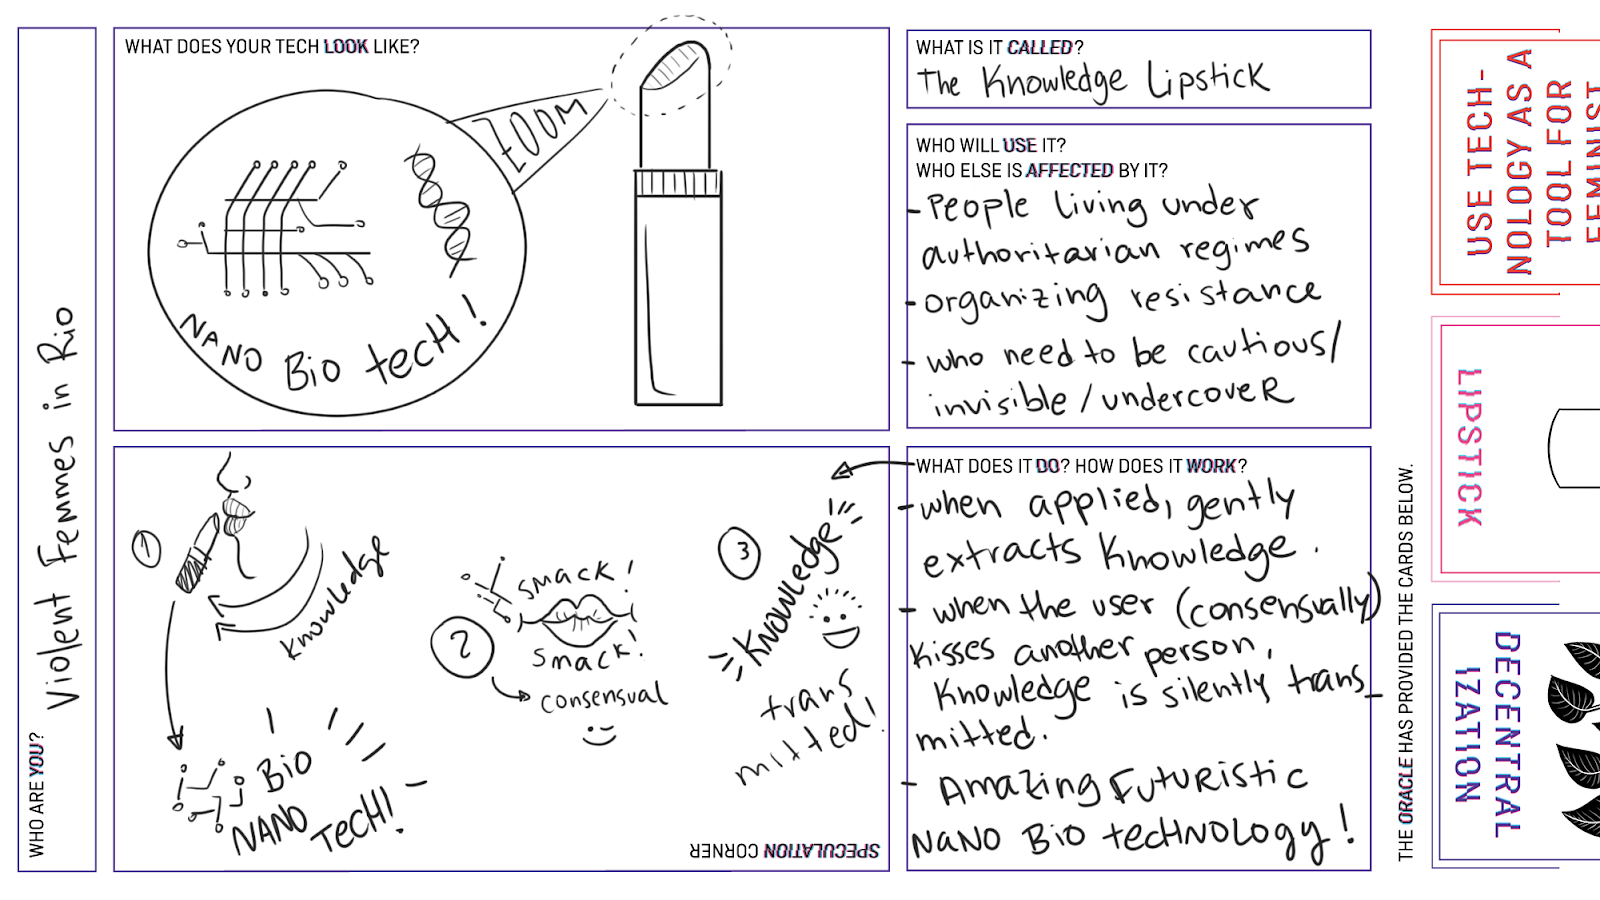 WHO ARE YOU?
Violent Femmes in Rio
WHAT DOES YOUR TECH LOOK LIKE?
ZOOM
NANO Bio tecH!
WHAT IS IT CALLED?
The Knowledge Lipstick
WHO WILL USE IT?
WHO ELSE IS AFFECTED BY IT?
- People living under
authoritarian regimes
- organizing resistance
- who need to be cautious/
invisible/undercover
1
Knowledge
Bio
NANO TecH!
2
smack!
smack!
consensual
3
Knowledge
trans
mitted!
SPECULATION CORNER
WHAT DOES IT DO? HOW DOES IT WORK?
- when applied, gently
extracts Knowledge.
- when the user (consensually)
kisses another person,
Knowledge is silently trans_
mitted.
- Amazing Futuristic
NaNo Bio technology!
THE ORACLE HAS PROVIDED THE CARDS BELOW.
USE TECH-
NOLOGY AS A
TOOL FOR
LIPSTICK
DECENTRAL
IZATION